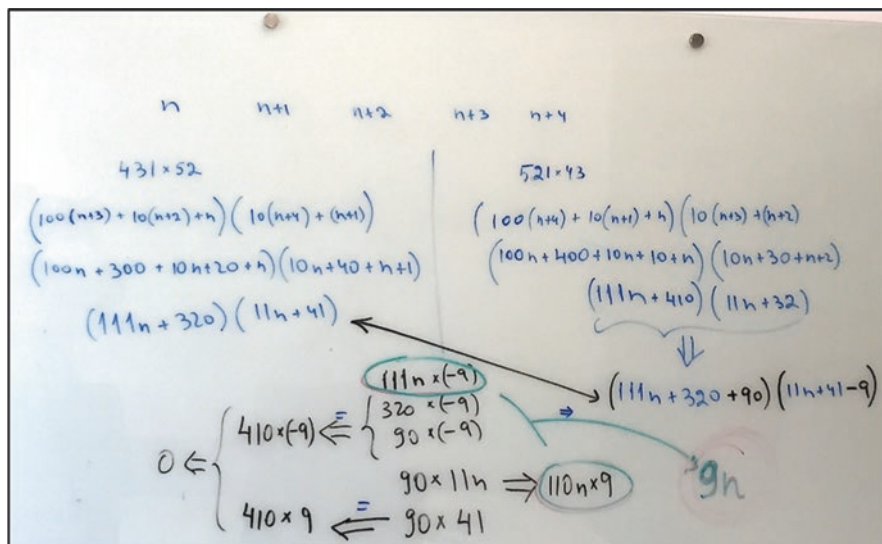 n n+1 n+2 n+3 n+4
431×52
(100(n+3) + 10(n+2) + n)(10(n+4) + (n+1))
(100n + 300 + 10n+20 + n)(10n+40 + n+1)
(111n + 320)(11n + 41)
521×43
(100(n+4) + 10(n+1) + n)(10(n+3) + (n+2)
(100n + 400 + 10n + 10 + n)(10n + 30 + n+2)
(111n + 410)(11n + 32)
⇓
(111n + 320 + 90)(11n + 41 - 9)
111n × (-9) ⇒ 9n
0 ⇐ { 410 × (-9) ⇐= { 320 × (-9)
90 × (-9)
90 × 11n ⇒ 110n × 9
410 × 9 ⇐= 90 × 41